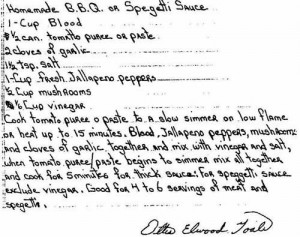 Homemade B.B.Q. or Spegetti Sauce
1-Cup Blood
½ can. tomato puree or paste
2 cloves of garlic
1½ tsp. salt
1-Cup fresh Jallapeno peppers
½ Cup mushrooms
¼ Cup vinegar
Cook tomato puree or paste to a slow simmer on low flame
or heat up to 15 minutes. Blood, Jallapeno peppers, mushrooms
and cloves of garlic together and mix with vinegar and salt,
when tomato puree/paste begins to simmer mix all together
and cook for 5 minutes for thick sauce. for speggetti sauce
exclude vinegar. Good for 4 to 6 servings of meat and
spegetti.
Ottis Elwood Toole